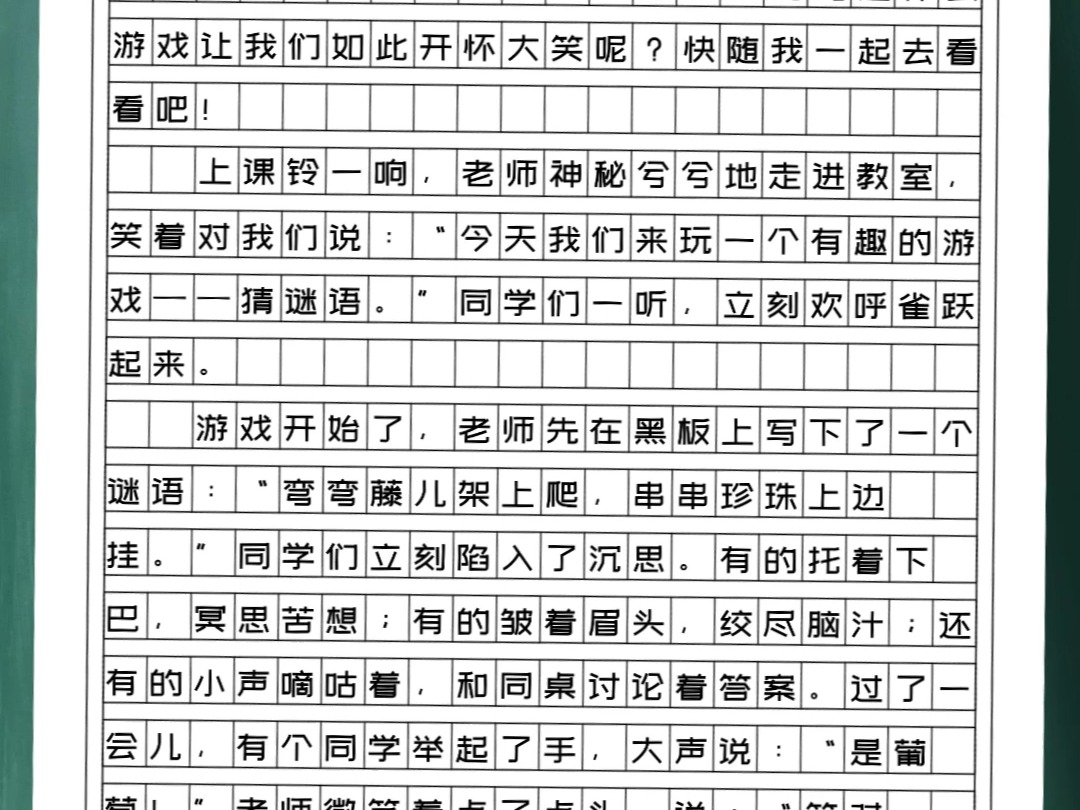 游戏让我们如此开怀大笑呢?快随我一起去看
看吧!
上课铃一响,老师神秘兮兮地走进教室,
笑着对我们说:“今天我们来玩一个有趣的游
戏——猜谜语。”同学们一听,立刻欢呼雀跃
起来。
游戏开始了,老师先在黑板上写下了一个
谜语:“弯弯藤儿架上爬,串串珍珠上边
挂。”同学们立刻陷入了沉思。有的托着下
巴,冥思苦想;有的皱着眉头,绞尽脑汁;还
有的小声嘀咕着,和同桌讨论着答案。过了一
会儿,有个同学举起了手,大声说:“是葡
萄!”老师微笑着点了点头,说:“答对